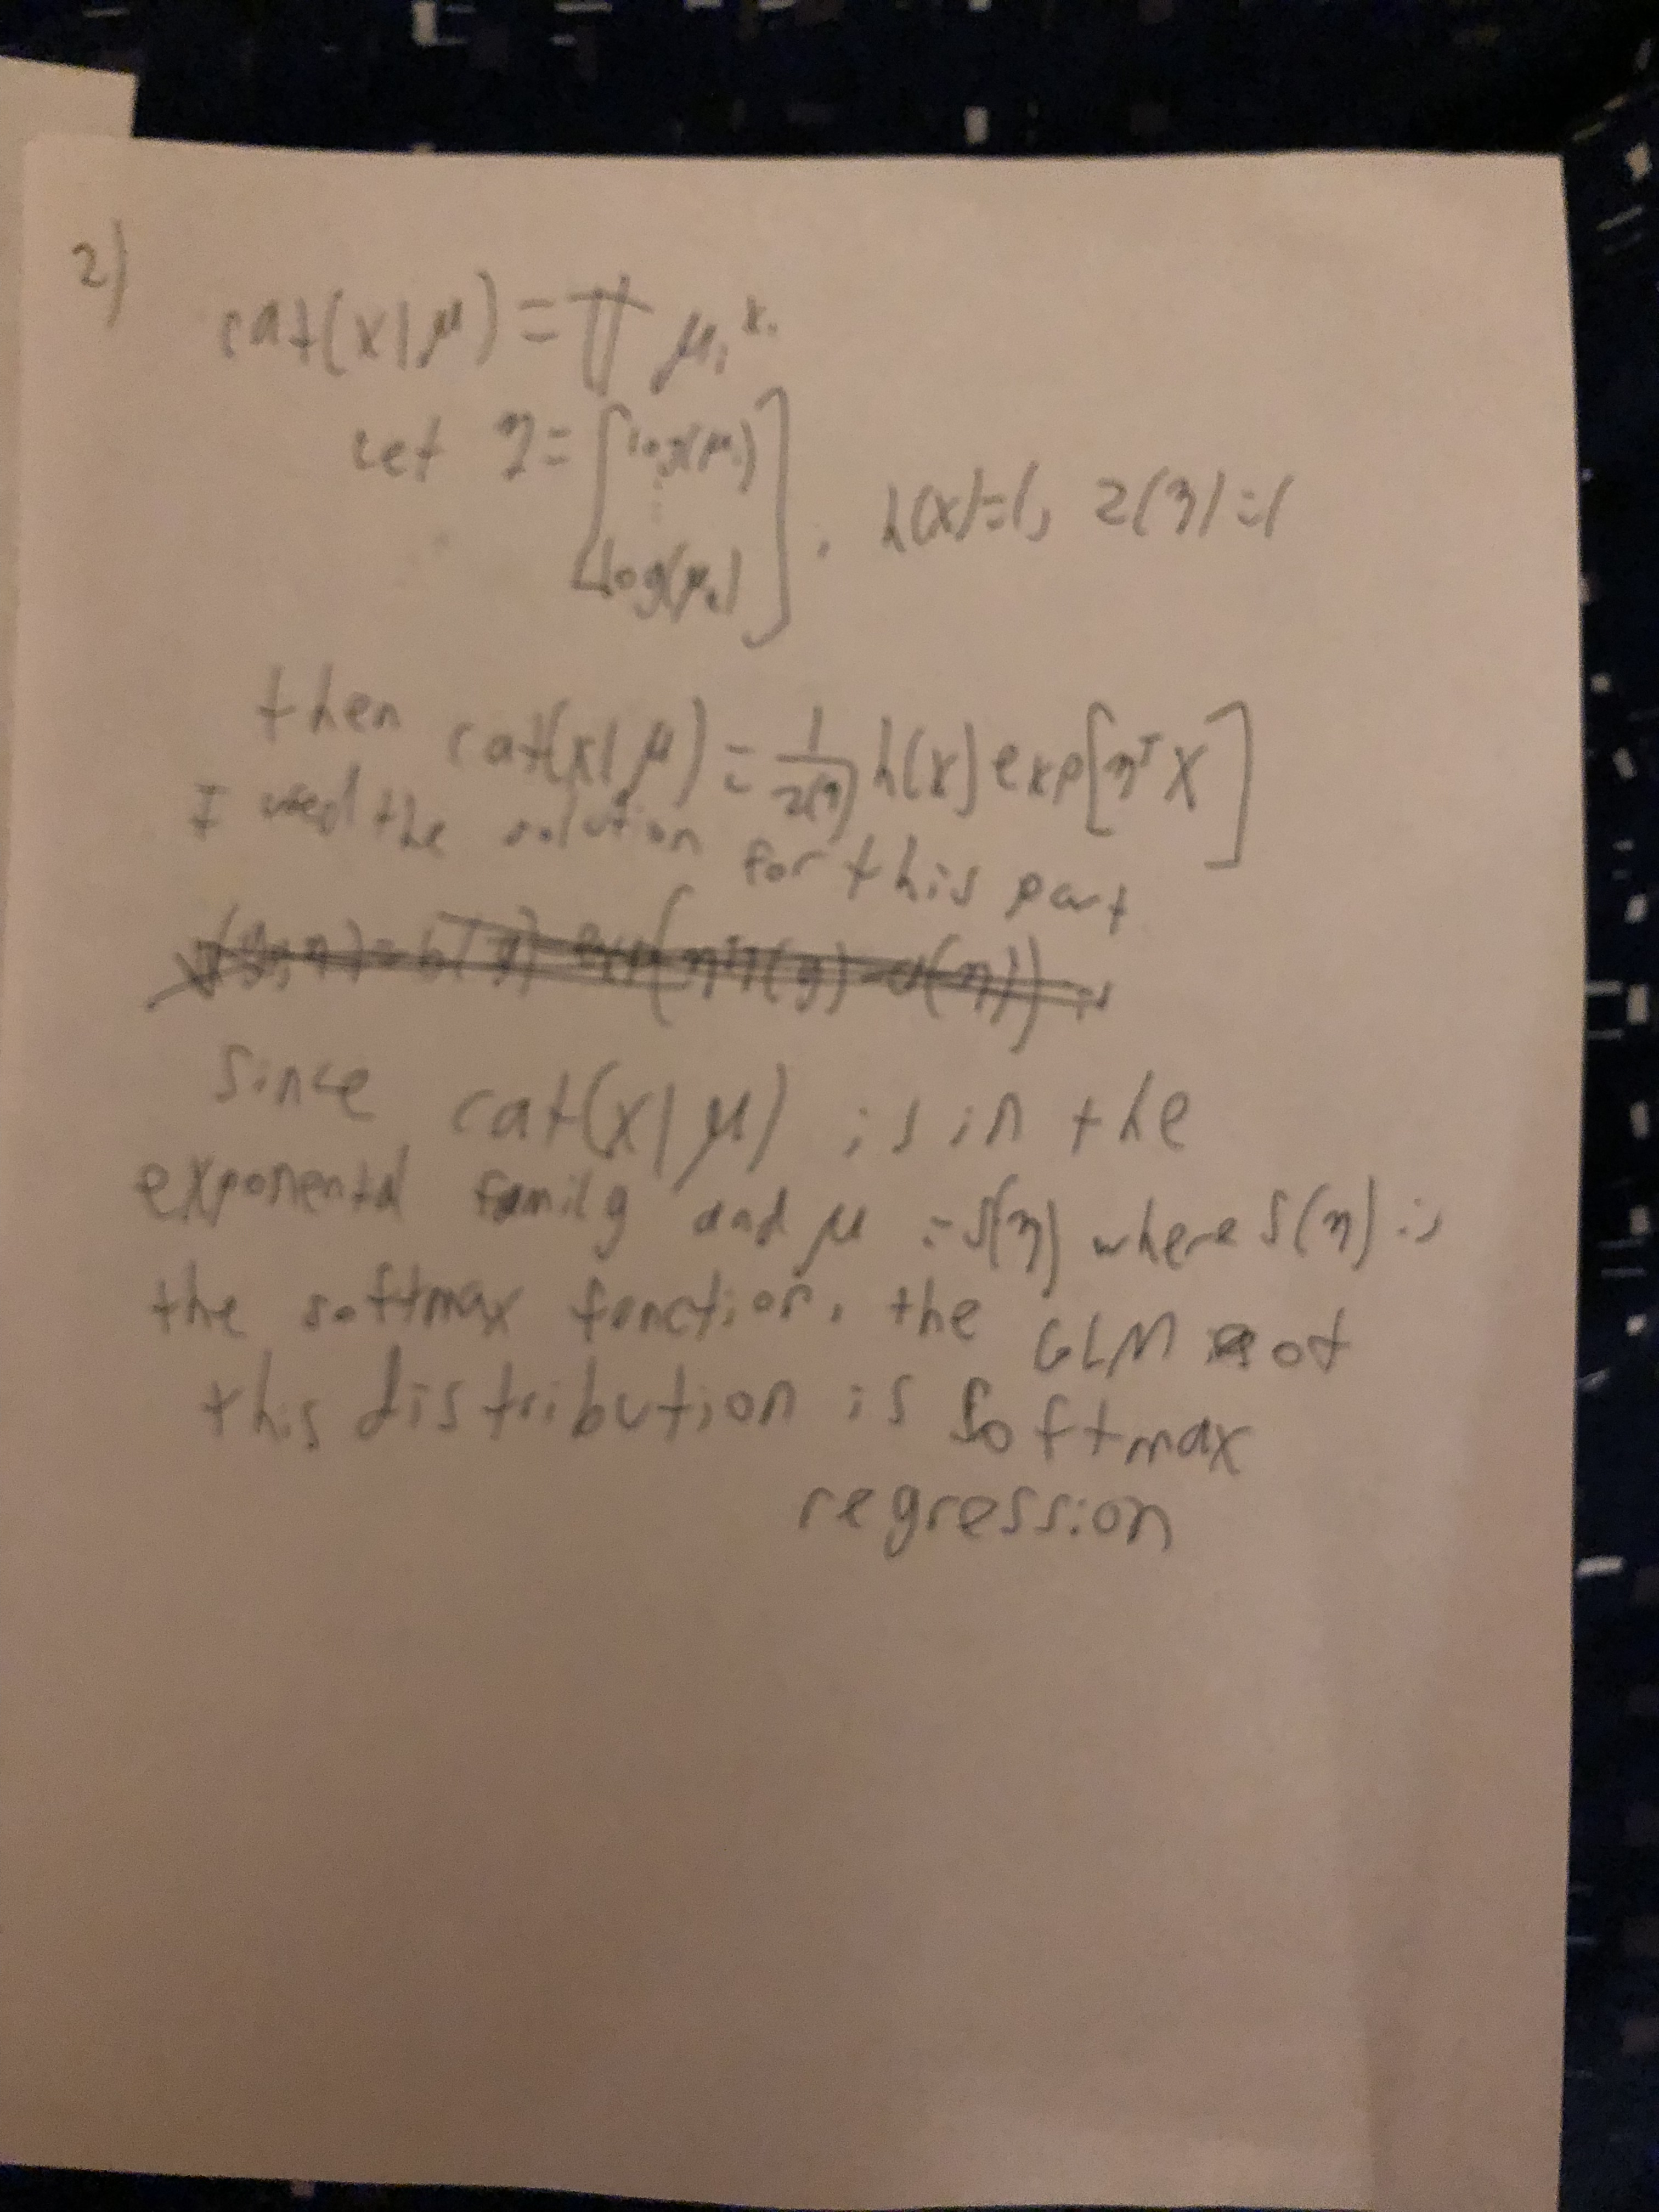 2)
cat(x|μ) = ∏ μᵢ^xᵢ
Let η = [log(μ₁)
⋮
log(μₖ)], h(x)=1, Z(η)=1
then cat(x|μ) = 1/Z(η) h(x) exp[ηᵀx]
I used the solution for this part
since cat(x|μ) is in the
exponential family and μ = S(η) where S(η) is
the softmax function, the GLM of
this distribution is softmax
regression